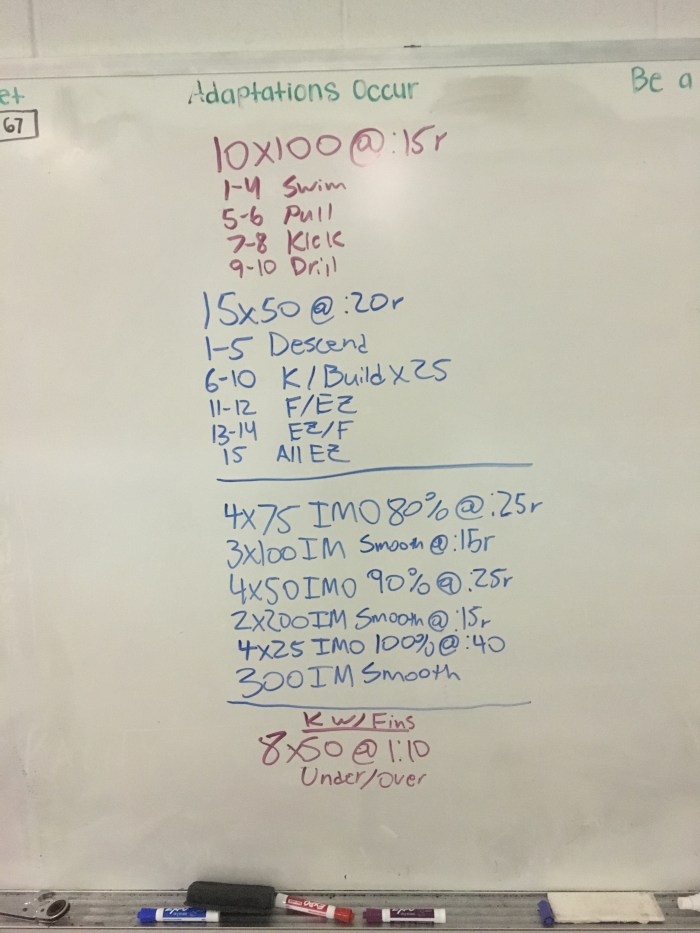 et
Adaptations Occur
Be a
67
10x100 @ :15r
1-4 Swim
5-6 Pull
7-8 Kick
9-10 Drill
15x50 @ :20r
1-5 Descend
6-10 K/Build x 25
11-12 F/EZ
13-14 EZ/F
15 All EZ
4x75 IMO 80% @ :25r
3x100 IM Smooth @ :15r
4x50 IMO 90% @ :25r
2x200 IM Smooth @ :15r
4x25 IMO 100% @ :40
300 IM Smooth
K w/ Fins
8x50 @ 1:10
Under/Over